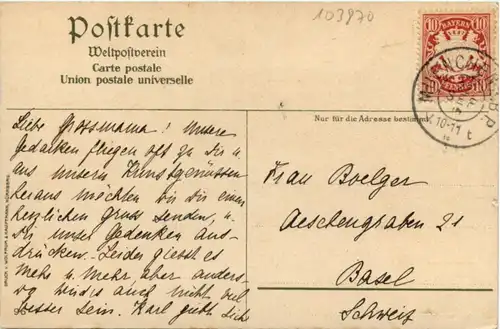 103970
Postkarte
Weltpostverein
Carte postale
Union postale universelle
BAYERN
10 10
PFENNIG
MUENCHEN
10-11
Nur für die Adresse bestimmt.
Liebe Grossmama! Unsere
Gedanken fliegen oft zu Dir u.
aus unsern Kunstgenüssen
heraus möchten wir Dir einen
herzlichen Gruss senden, u.
Dir unser Gedenken aus-
drücken. Leider giesst es
mehr u. mehr aber anders-
wo wird's auch nicht viel
besser sein. Karl giebt sich
Frau Boelger
Aeschengraben 21
Basel
Schweiz